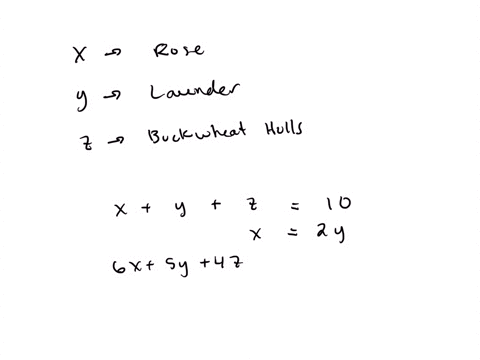 x → Rose
y → Launder
z → Buckwheat Hulls
x + y + z = 10
x = 2y
6x + 5y + 4z